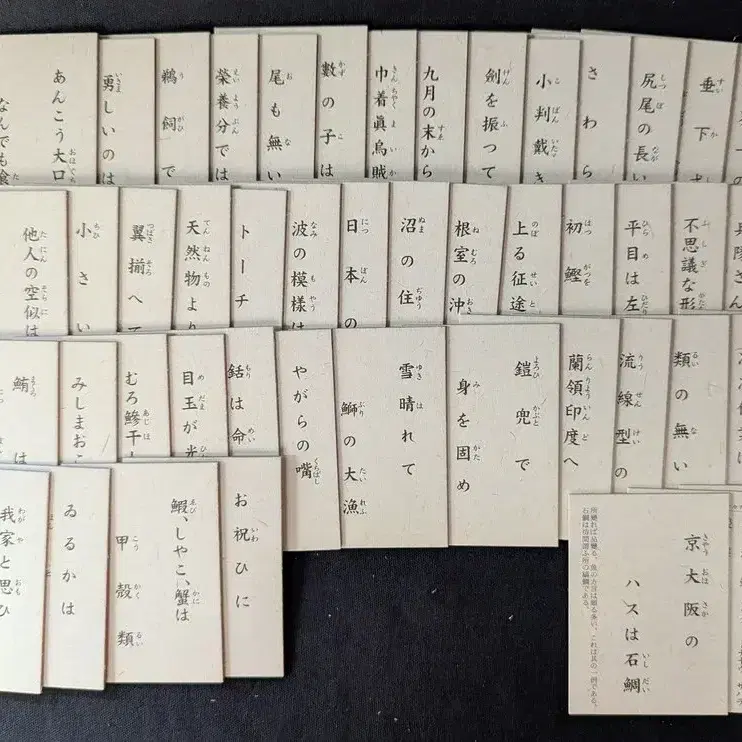 垂下
尻尾の長い
さわら
小判戴き
劍を振つて
九月の末から
巾着眞烏賊
數の子は
尾も無い
榮養分では
鵜飼で
勇しいのは
あんこう大口
なんでも食
兵隊さん
不思議な形
平目は左
初鰹
上る征途
根室の沖
沼の住
日本の
波の模樣は
トーチ
天然物より
翼揃へて
小さい
他人の空似は
類の無い
流線型の
蘭領印度へ
鎧兜で
身を固め
雪晴れて
鰤の大漁
やがらの嘴
銛は命
目玉が光
むろ鰺干し
みしまおこ
鮪は
お祝ひに
鰕、しやこ、蟹は
甲殼類
ゐるかは
我家と思ひ
京大阪の
ハスは石鯛
所變れば品變る。魚の方言は頗る多い、これは其の一例である。